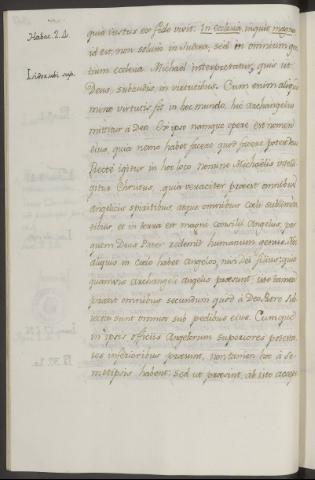 Habac. 2. 4.
quia iustus ex fide vivit. In Ecclesia, inquit, magna
id est, non solum in Iudæa, sed in omnium gen
tium ecclesia Michaël interpretatur, quis ut
Deus, subaudis, in virtutibus. Cum enim aliquid
miræ virtutis fit in hoc mundo, hic archangelus
mittitur a Deo. Et ipso namque opere est nomen
eius, quia nemo habet facere quod facere potest Deus
Recte igitur in hoc loco nomine Michaëlis intelli
gitur Christus, quia veraciter præest omnibus
angelicis spiritibus atque omnibus cœli
tibus, et in terra est magni consilii Angelus, per
quem Deus Pater redemit humanum genus.
aliquis in cœlo habet Angelos, nisi Dei filius: quia
quamvis Archangeli angelis præsunt,
præest omnibus secundum quod a Deo Patre
iecta sunt omnia sub pedibus eius. Cumque
in ipsis officiis Angelorum superiores potesta
tes inferioribus præsunt, non tamen hoc à se
metipsis habent, sed ut præsint, ab isto accep